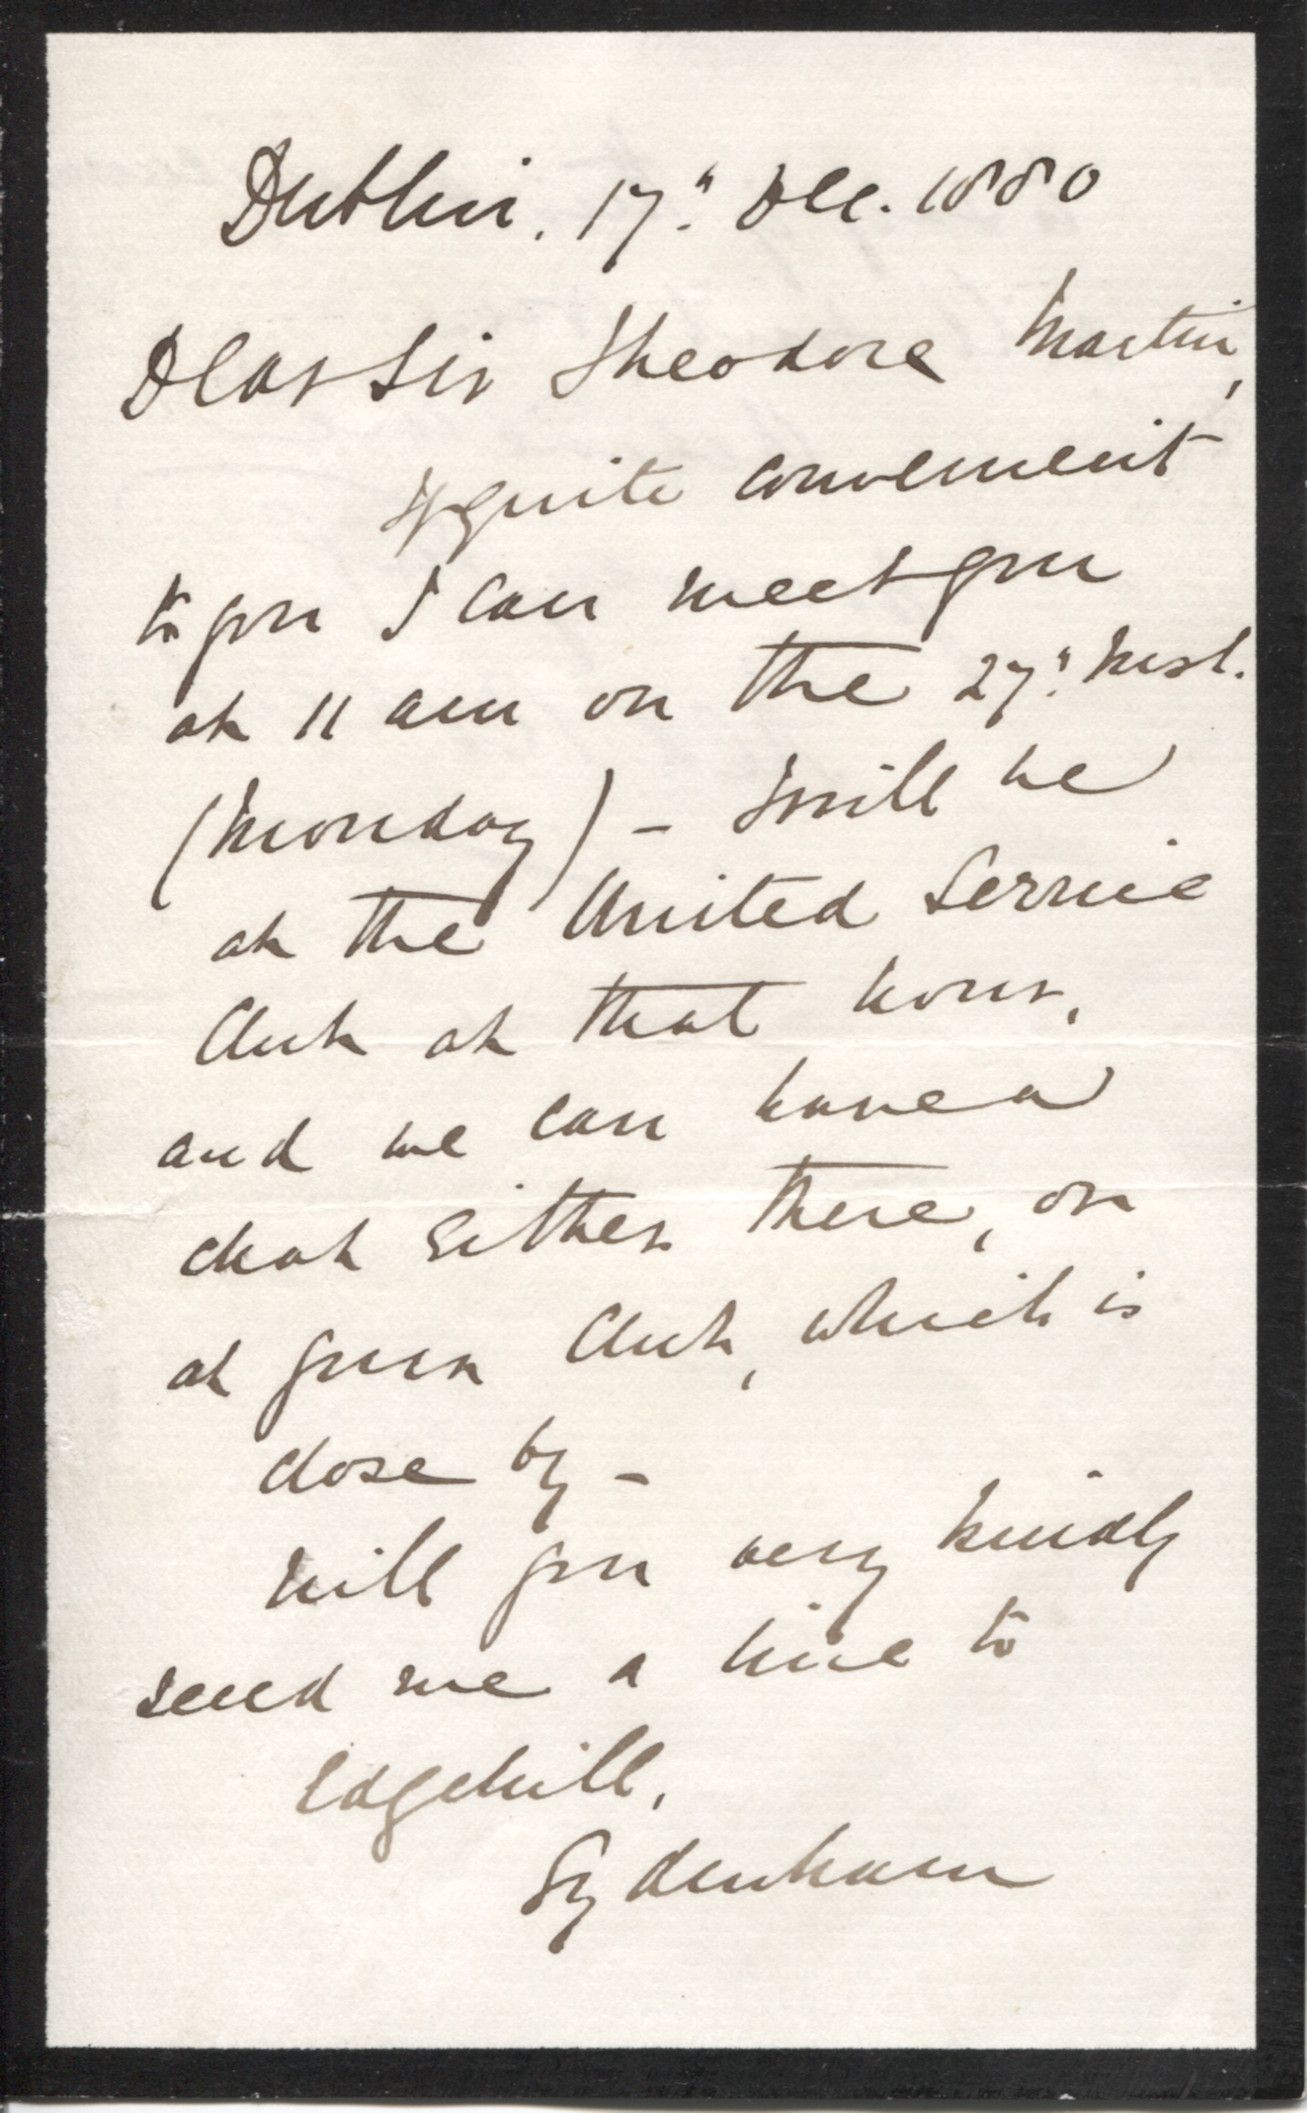 Dublin. 17". Dec. 1880
Dear Sir Theodore Martin,
If quite convenient
to you I can meet you
at 11 am on the 27". Inst.
(Monday) - I will be
at the United Service
Club at that hour,
and we can have a
chat either there, or
at your Club, which is
close by -
Will you very kindly
send me a line to
Edgehill,
Sydenham